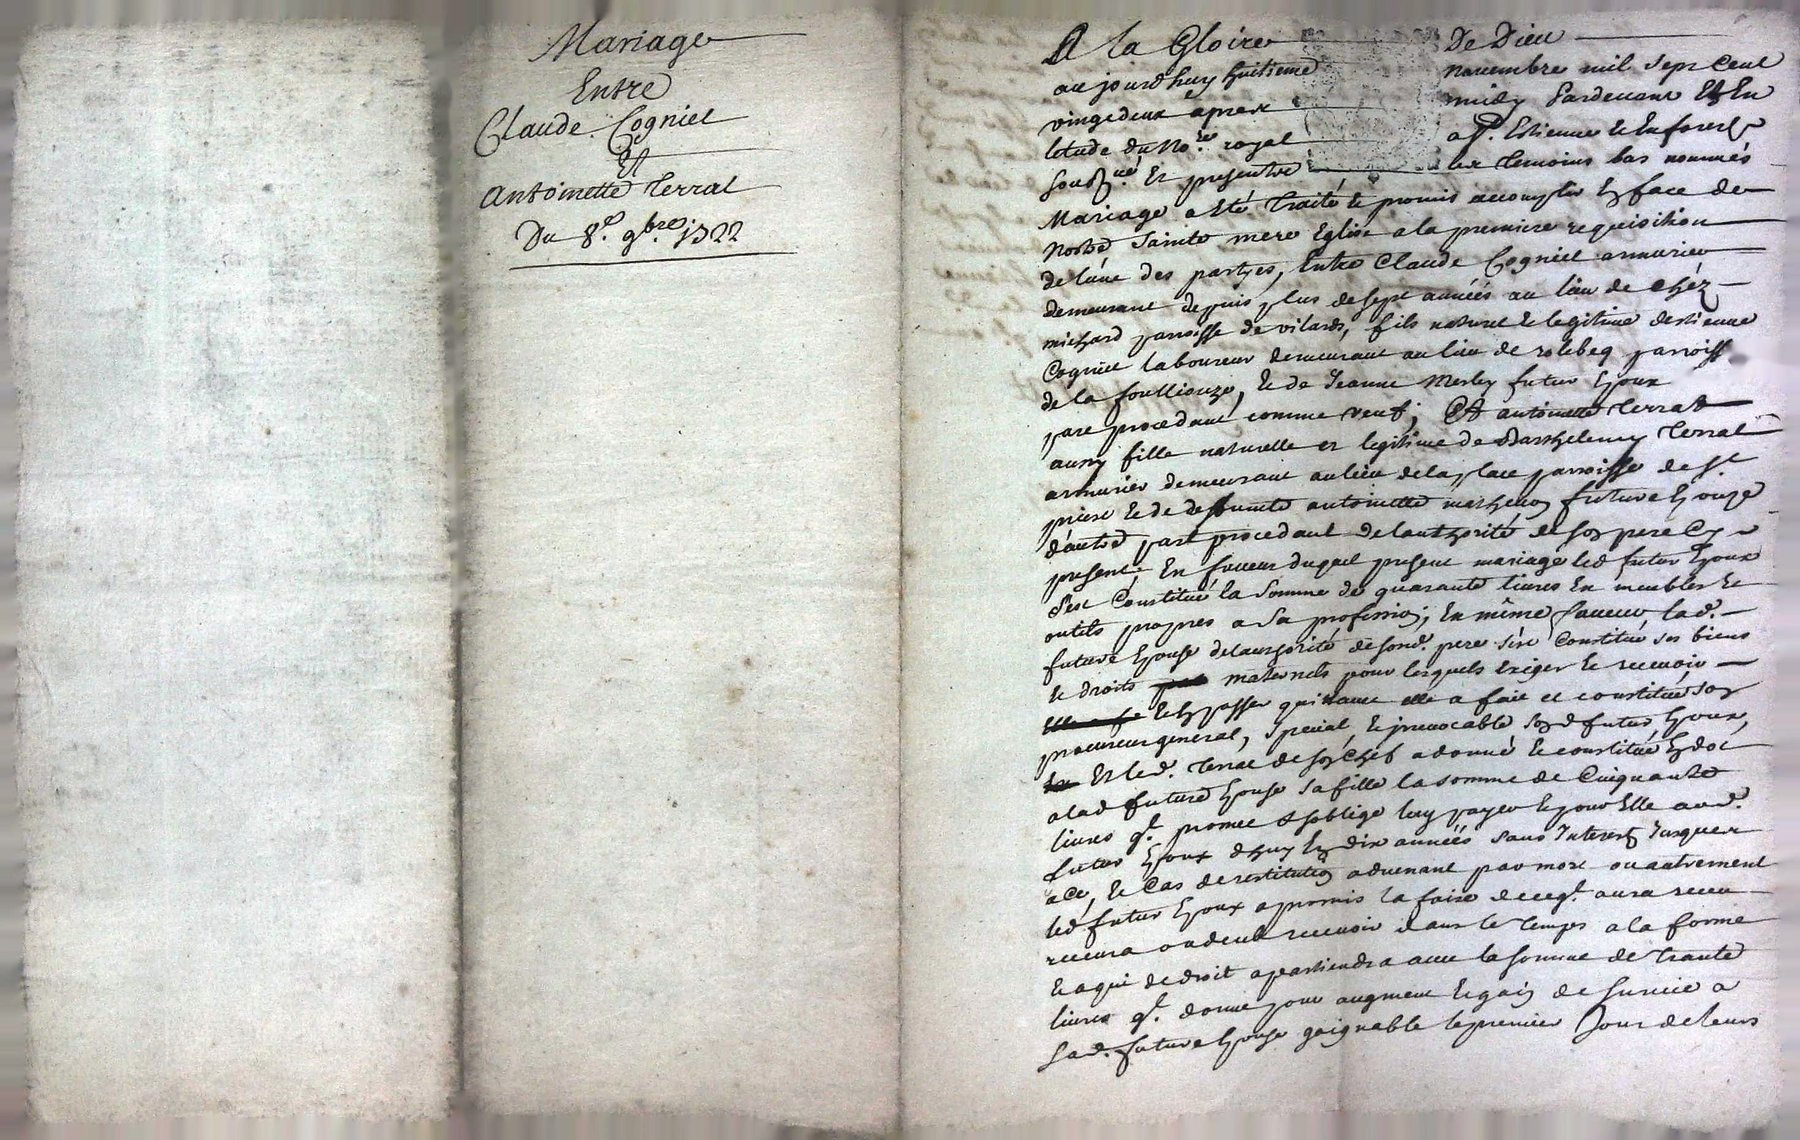 Mariage
Entre
Claude Cogniet
Et
Antoinette Terrat
Du 8e. 9bre. 1722
A la Gloire De Dieu
aujourdhuy huitieme novembre mil sept cent
vingtdeux apres midy pardevant Et En
letude du Nore. royal a St. Estienne le en forest
sousné. Et presentes les temoins bas nommés
Mariage a Eté traité le promis accomplir En face de
nostre Sainte mere Eglise a la premiere requisition
de l'une des partyes, Entre Claude Cogniet armurier
demeurant depuis plus de sept années au lieu de chéz
michard parroisse de vilards, fils naturel & legitime destienne
Cogniet laboureur demeurant au lieu de parroisse
de la foullouze, & de Jeanne Merley futur Epoux
part procedant comme veuf; Et antoinette Terrat
aussy fille naturelle et legitime de Barthelemy Terrat
armurier demeurant au lieu de la place parroisse de St.
priest & de deffunte antoinette mathevon future Epouze
d'autre part procedant de lauthorité de son pere Cy
present; En faveur duquel present mariage led futur Epoux
s'est Constitué la somme de quarante livres En meubles &
outils propres a sa profession; En même faveur, lad.
future Epouse de lauthorité de sond. pere s'est Constitué ses biens
& droits maternels pour lesquels exiger & recevoir
& En passer quittance elle a fait et constitué son
procureur general, special, & irrevocable sond futur Epoux,
Et led. Terrat de son Chef a donné & constitué En dot
a lad future Epouse sa fille la somme de Cinquante
livres ql. promet & s'oblige luy payer & pour Elle aud.
futur Epoux d'huy En dix années sans Interest Jusques
a Ce, & Cas de restitution advenant par mort ou autrement
led futur Epoux a promis la faire de ce ql. aura receu
recevra ou deub recevoir dans le temps a la forme
& a qui de droit apartiendra avec la somme de trante
livres ql. donne pour augment & gain de survie a
sad. future Epouse gaignable le premier Jour de leurs